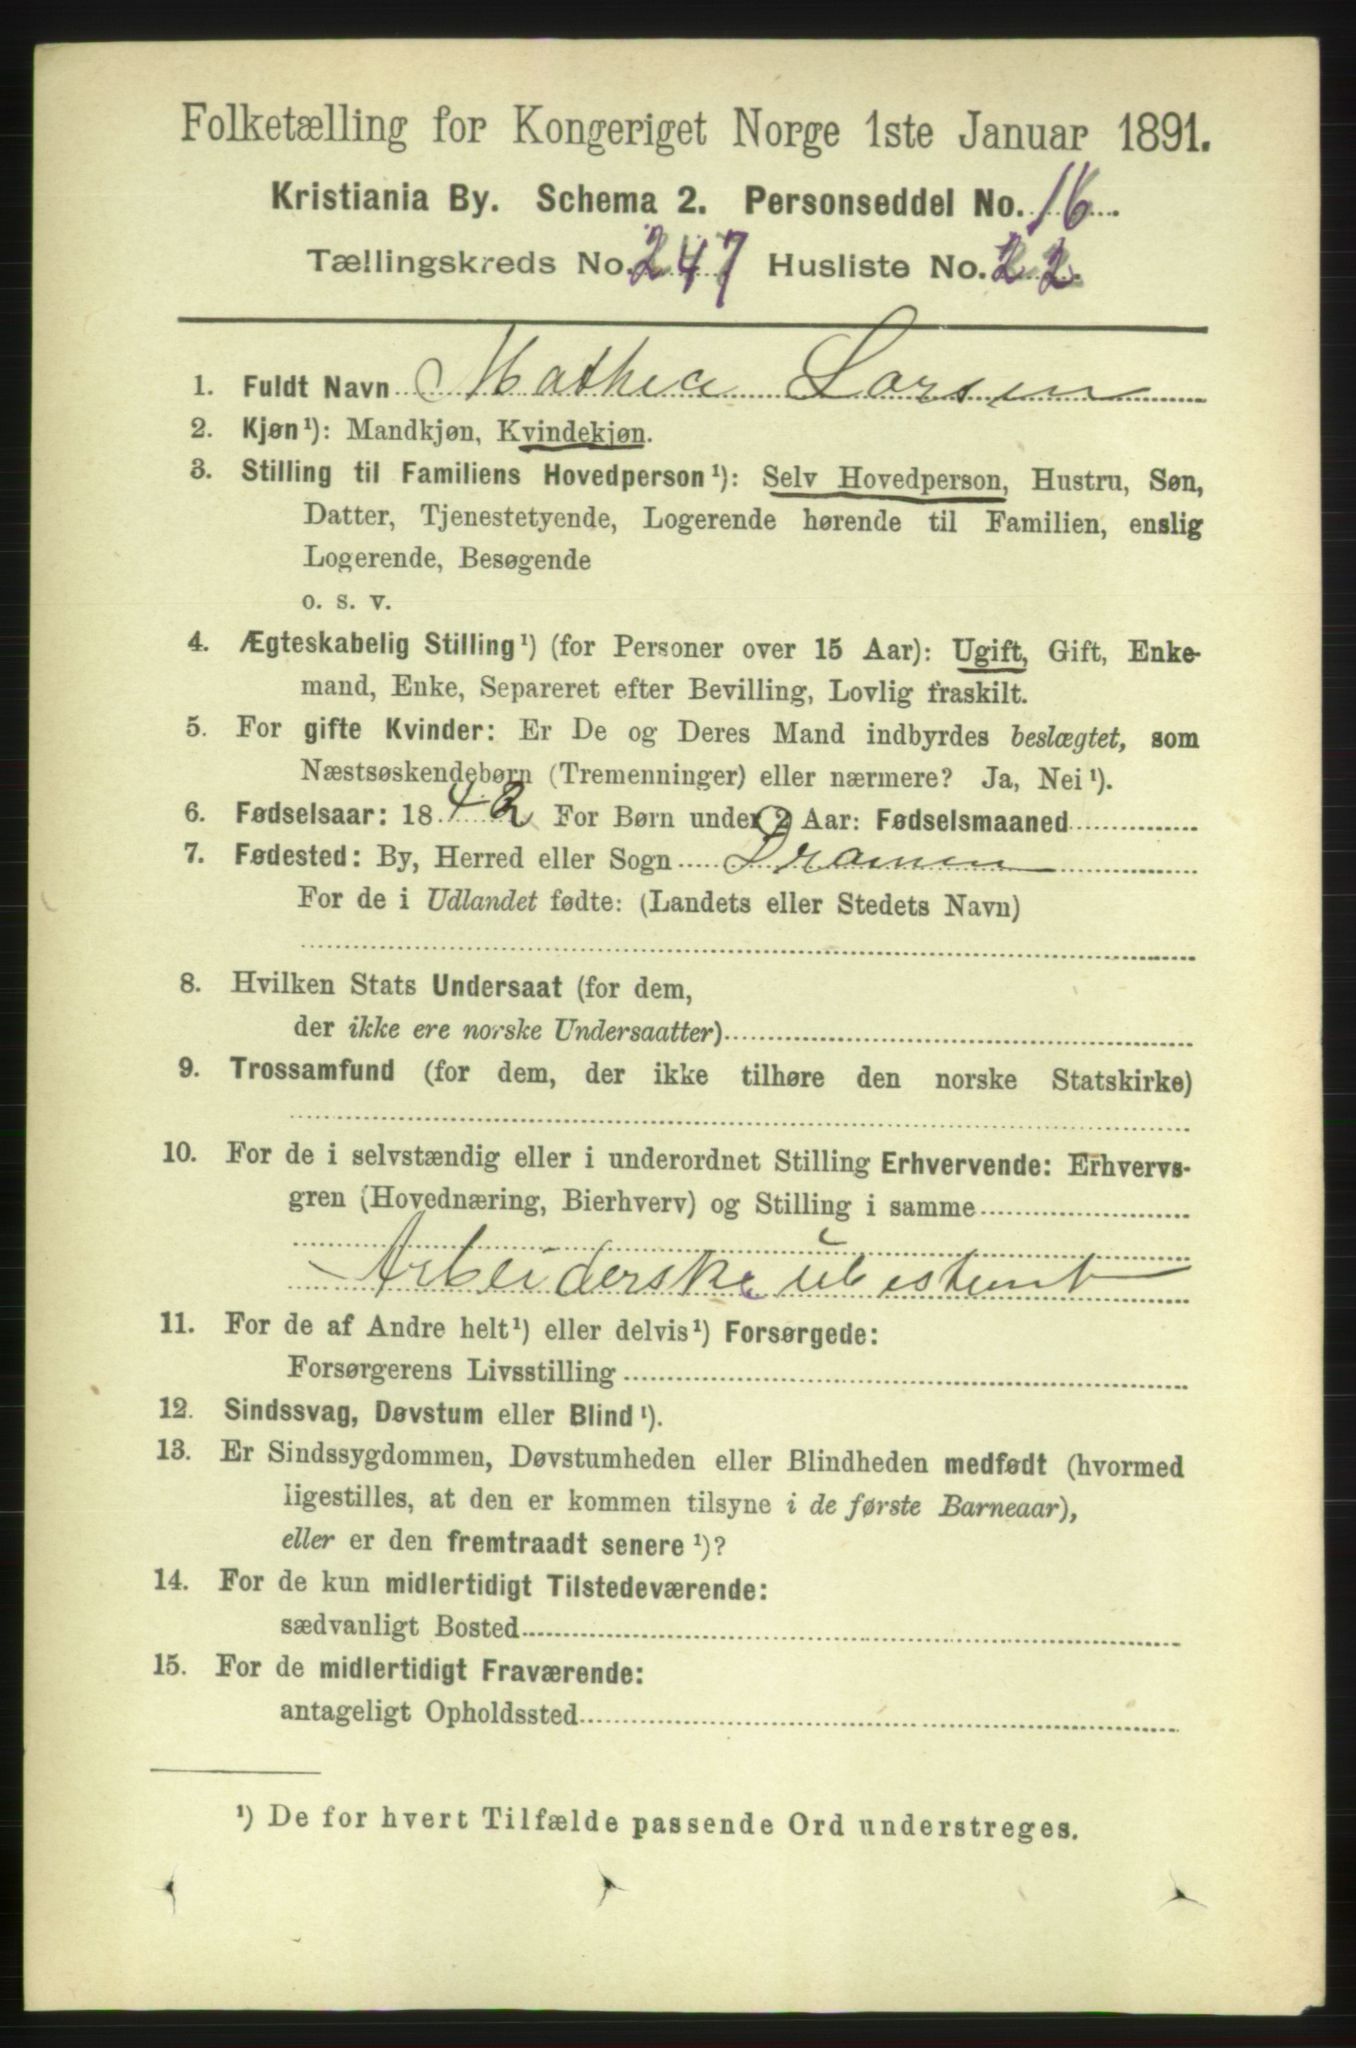 Folketælling for Kongeriget Norge 1ste Januar 1891.
Kristiania By. Schema 2. Personseddel No. 16.
Tællingskreds No. 247 Husliste No. 22.
1. Fuldt Navn Mathea Larsen
2. Kjøn¹): Mandkjøn, Kvindekjøn.
3. Stilling til Familiens Hovedperson¹): Selv Hovedperson, Hustru, Søn,
Datter, Tjenestetyende, Logerende hørende til Familien, enslig
Logerende, Besøgende
o. s. v.
4. Ægteskabelig Stilling¹) (for Personer over 15 Aar): Ugift, Gift, Enke-
mand, Enke, Separeret efter Bevilling, Lovlig fraskilt.
5. For gifte Kvinder: Er De og Deres Mand indbyrdes beslægtet, som
Næstsøskendebørn (Tremenninger) eller nærmere? Ja, Nei¹).
6. Fødselsaar: 1842 For Børn under 2 Aar: Fødselsmaaned
7. Fødested: By, Herred eller Sogn Dramen
For de i Udlandet fødte: (Landets eller Stedets Navn)
8. Hvilken Stats Undersaat (for dem,
der ikke ere norske Undersaatter)
9. Trossamfund (for dem, der ikke tilhøre den norske Statskirke)
10. For de i selvstændig eller i underordnet Stilling Erhvervende: Erhvervs-
gren (Hovednæring, Bierhverv) og Stilling i samme
Arbeiderske ubestemt
11. For de af Andre helt¹) eller delvis¹) Forsørgede:
Forsørgerens Livsstilling
12. Sindssvag, Døvstum eller Blind¹).
13. Er Sindssygdommen, Døvstumheden eller Blindheden medfødt (hvormed
ligestilles, at den er kommen tilsyne i de første Barneaar),
eller er den fremtraadt senere¹)?
14. For de kun midlertidigt Tilstedeværende:
sædvanligt Bosted
15. For de midlertidigt Fraværende:
antageligt Opholdssted
¹) De for hvert Tilfælde passende Ord understreges.